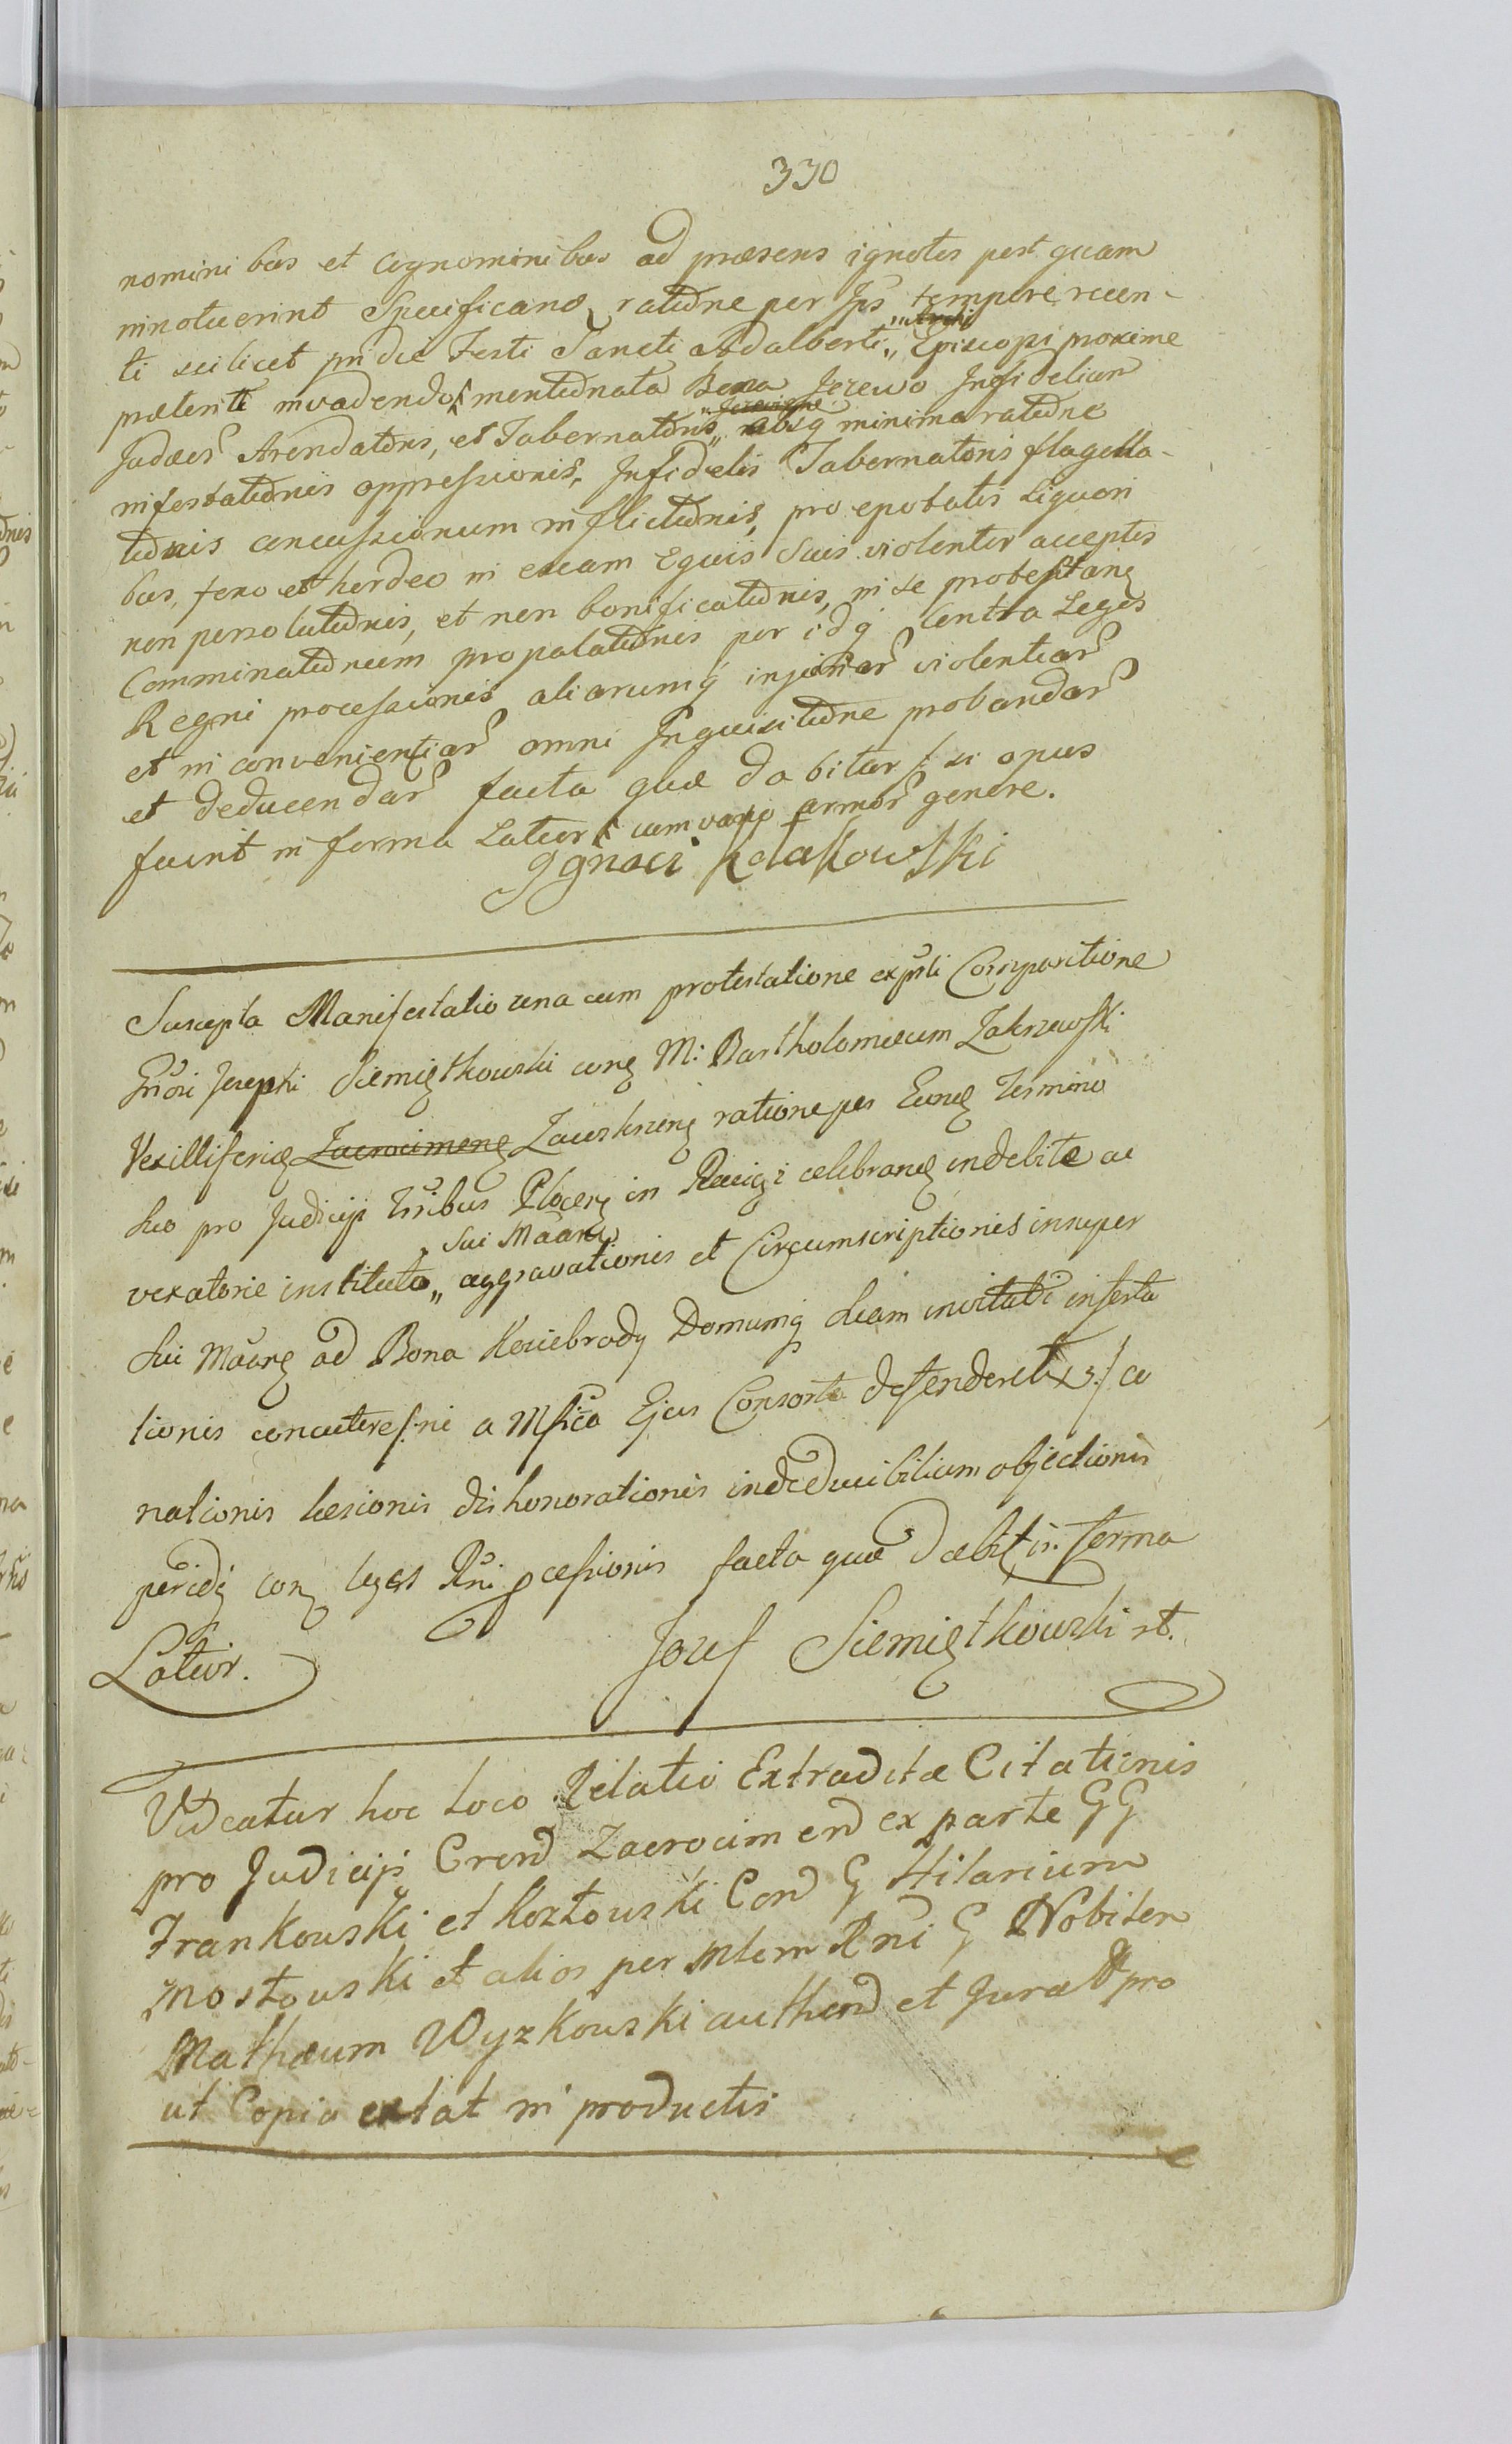 330
nominibus et cognominibus ad præsens ignotis postquam
innotuerint Specificanđ ratiōne per Ips tempore recen-
ti scilicet pridie Festi Sancti Adalberti „Archi„ Episcopi proxime
præteriti invadendo mentiōnata Bona Jezewo Infidelium
Judæor Arendatoris, et Tabernatoris absq minima ratiōne
infestatiōnis oppressionis, Infidelis Tabernatoris flagella-
tiōnis concussionum inflictiōnis, pro epotatis Liquori
bus, feno et hordeo in escam Equis Suis violenter acceptis
non persolutiōnis, et non bonificatiōnis, in se protestanę
Comminatiōnum propalatiōnis per idq contra Leges
Regni processionis aliarumq injuriar violentiar
et inconvenientiar omni Inquisitiōne probandar
et deducendar facta quæ dabitur si opus
fuerit in forma Latior cum vario armor genere.
Ignaci Kołakowski
Suscepta Manifestatio una cum protestatione ex pñti Comparitione
Gñosi Josephi Siemiętkowski conę M: Bartholomeum Zakrzewski
Vexilliferię Zacrocimenę Zawskrzenę ratione per Eundę Termino
suo pro Judicijs Tŕŕibus Plocenę in Raciąż celebranę indebite ac
„ Sui Māanę
vexatorie instituto„ aggravationis et Circumscriptionis insuper
Sui Māanę ad Bona Kosiebrody Domumq Suam invitati infesta
tionis concuteres ni a Mfica Ejus Consorte defenderetur ac
nationis læsionis dishonorationis indeducibilium objectionis
per idq conę leges Rñi pcessionis facta quæ dabit in forma
Latior.
Jozef Siemiętkowski st.
Videatur hoc loco Relatio Extraditæ Citationis
pro Judicijs Crend Zacrocimend ex parte GG
Frankowski et Koztowski Cond G Hilarium
Mostowski et alios per Mlem Rñi G Nobilem
Mathæum Wyzkowski authend et Jurat pro
ut Copia extat in productis